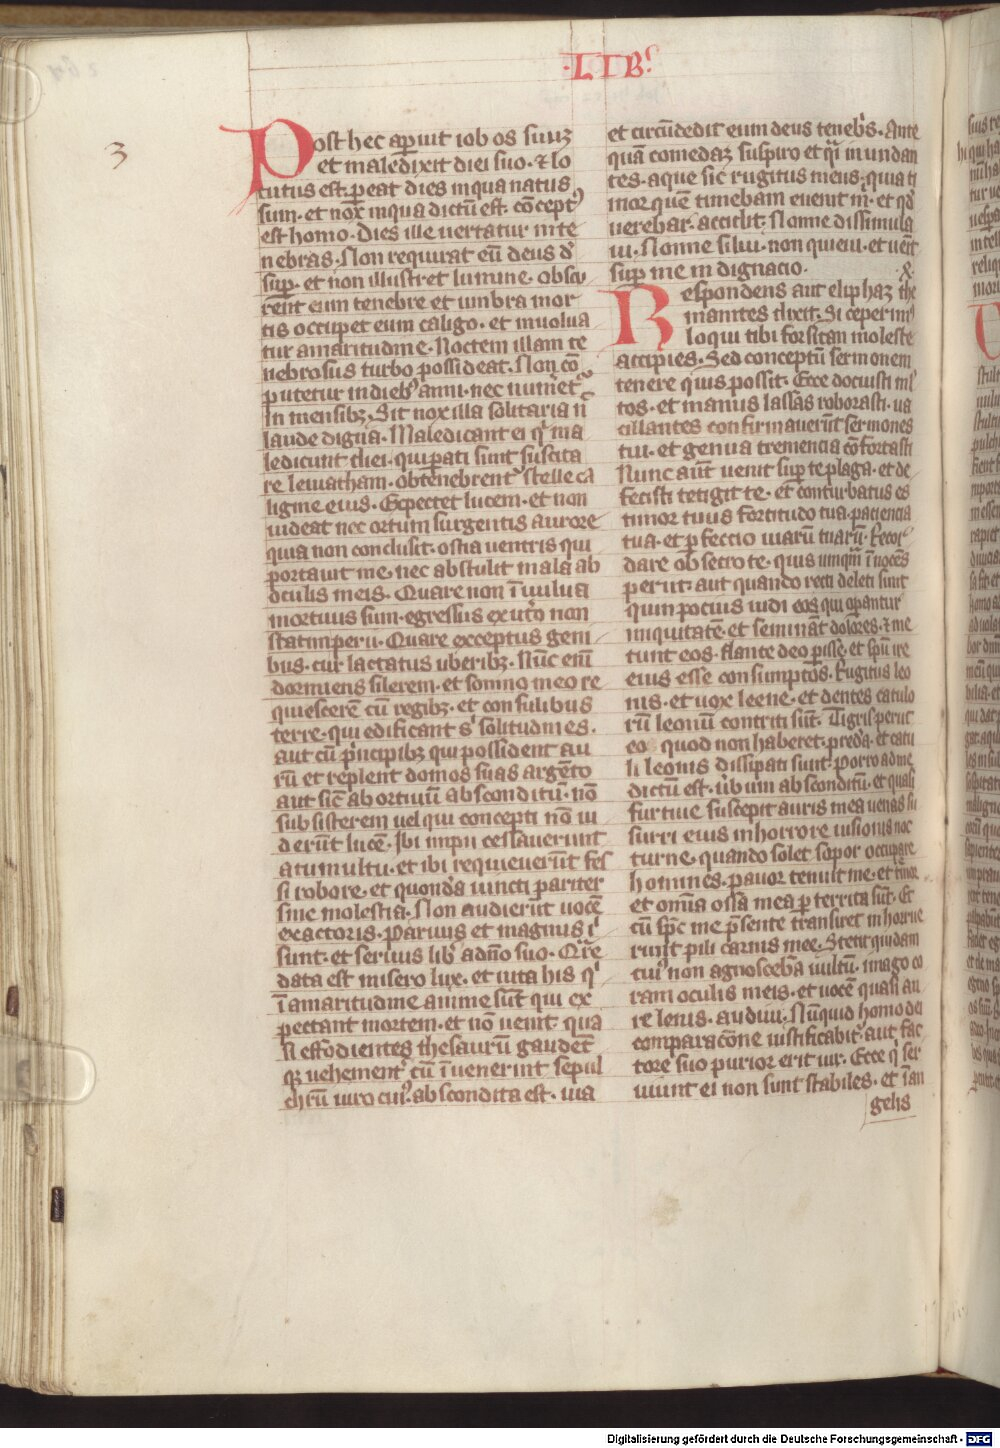 ·LIBꝰ
3
Post hec aꝑuit iob os suuʒ
et maledixit diei suo · ⁊ lo
cutus est · ꝑeat dies in qua natus
sum · et nox in qua dictū est · cōceptꝰ
est homo · Dies ille uertatur in te
nebras · Non requirat eū deus dͤ
suꝑ · et non illustret lumine · Obscu
rent eum tenebre et umbra mor
tis occupet eum caligo · et inuolua
tur amaritudine · Noctem illam te
nebrosus turbo possideat · Non cō
putetur in diebꝰ anni · nec nūmetͬ
In mensibꝫ · Sit nox illa solitaria n̄
laude digna · Maledicant ei qͥ ma
ledicunt diei · qui ꝑati sunt suscita
re leuiatham · Obtenebrentͬ stelle ca
ligine eius · Expectet lucem · et non
uideat nec ortum surgentis aurore
quia non conclusit · ostia uentris qui
portauit me · nec abstulit mala ab
oculis meis · Quare non ī uulua
mortuus sum · egressus ex utͦo non
statim perii · Quare exceptus geni
bus · cur lactatus uberibꝫ · Nūc eni̅
dormiens silerem · et somno meo re
quiescerē cū regibꝫ · et consulibus
terre · qui edificant sͥ solitudines ·
aut cū pͥncipibꝫ qui possident au
rū et replent domos suas argēto
aut sic̄ abortiuū absconditū · nō
subsisterem uel qui concepti nō ui
derūt lucē · Ibi impii cessauerunt
a tumultu · et ibi requieuerūt fes
si robore · et quondā uincti pariter
sine molestia · Non audierūt uocē
exactoris · Paruus et magnus ī
sunt · et seruus libͬ a dn̄o suo · Qͣre
data est misero lux · et uita his qͥ
ī amaritudine anime sūt qui ex
pectant mortem · et nō uenit · qua
si effodientes thesaurū gaudēt
qꝫ uehementͬ cū ī uenerint sepul
chrū uiro cuiꝰ abscondita est · uia
et circūdedit eum deus tenebͥs · Ante
quā comedaʒ suspiro et qͣi inundan
tes · aque sic rugitus meus · quia ti
mor quē timebam euenit mͥ · et qd̓
uerebar · accidit · Nonne dissimula
ui · Nonne silui · non quieui · et uēit
suꝑ me indignacio ·
Respondens aut eliphaʒ the
manites dixit · Si ceperimꝰ
loqui tibi forsitan moleste
accipies · Sed conceptū sermonem
tenere quis possit · Ecce docuisti ml̓
tos · et manus lassas roborasti · ua
cillantes confirmauerūt sermones
tui · et genua tremencia cōfortasti
Nunc aūt uenit suꝑ te plaga · et de
fecisti tetigit te · et conturbatus es
timor tuus fortitudo tua · paciencia
tua · et ꝑfectio uiarū tuarū · Recor
dare obsecro te · quis umqͣm ī nocēs
periit · aut quando recti deleti sunt
quin pocius uidi eos qui oꝑantur
iniquitatē · et semināt dolores · ⁊ me
tunt eos · flante deo ꝑisse · et spū ire
eius esse consumptos · Rugitus leo
nis · et uox leene · et dentes catulo
rū leonū contriti sūt · Tigris periit
eo quod non haberet · predā · et catu
li leonis dissipati sunt · Porro ad me
dictū est · ūbum absconditū · et quasi
furtiue suscepit auris mea uenas su
surri eius in horrore uisionis noc
turne · quando solet sopor occupare
homines · pauor tenuit me · et tīmor
et omīa ossa mea ꝑterrita sūt · Et
cū spc̄ me p̄sente transiret inhorrue
runt pili carnis mee · Stetit quidam
cuiꝰ non agnosceba̅ uultū · imago co
ram oculis meis · et uocē quasi au
re lenis · audiui · Nūquid homo dei
comparacōne iustificabitͬ · aut fac
tore suo purior erit uir · Ecce qͥ ser
uiunt ei non sunt stabiles · et ī an
gelis
Digitalisierung gefördert durch die Deutsche Forschungsgemeinschaft - DFG